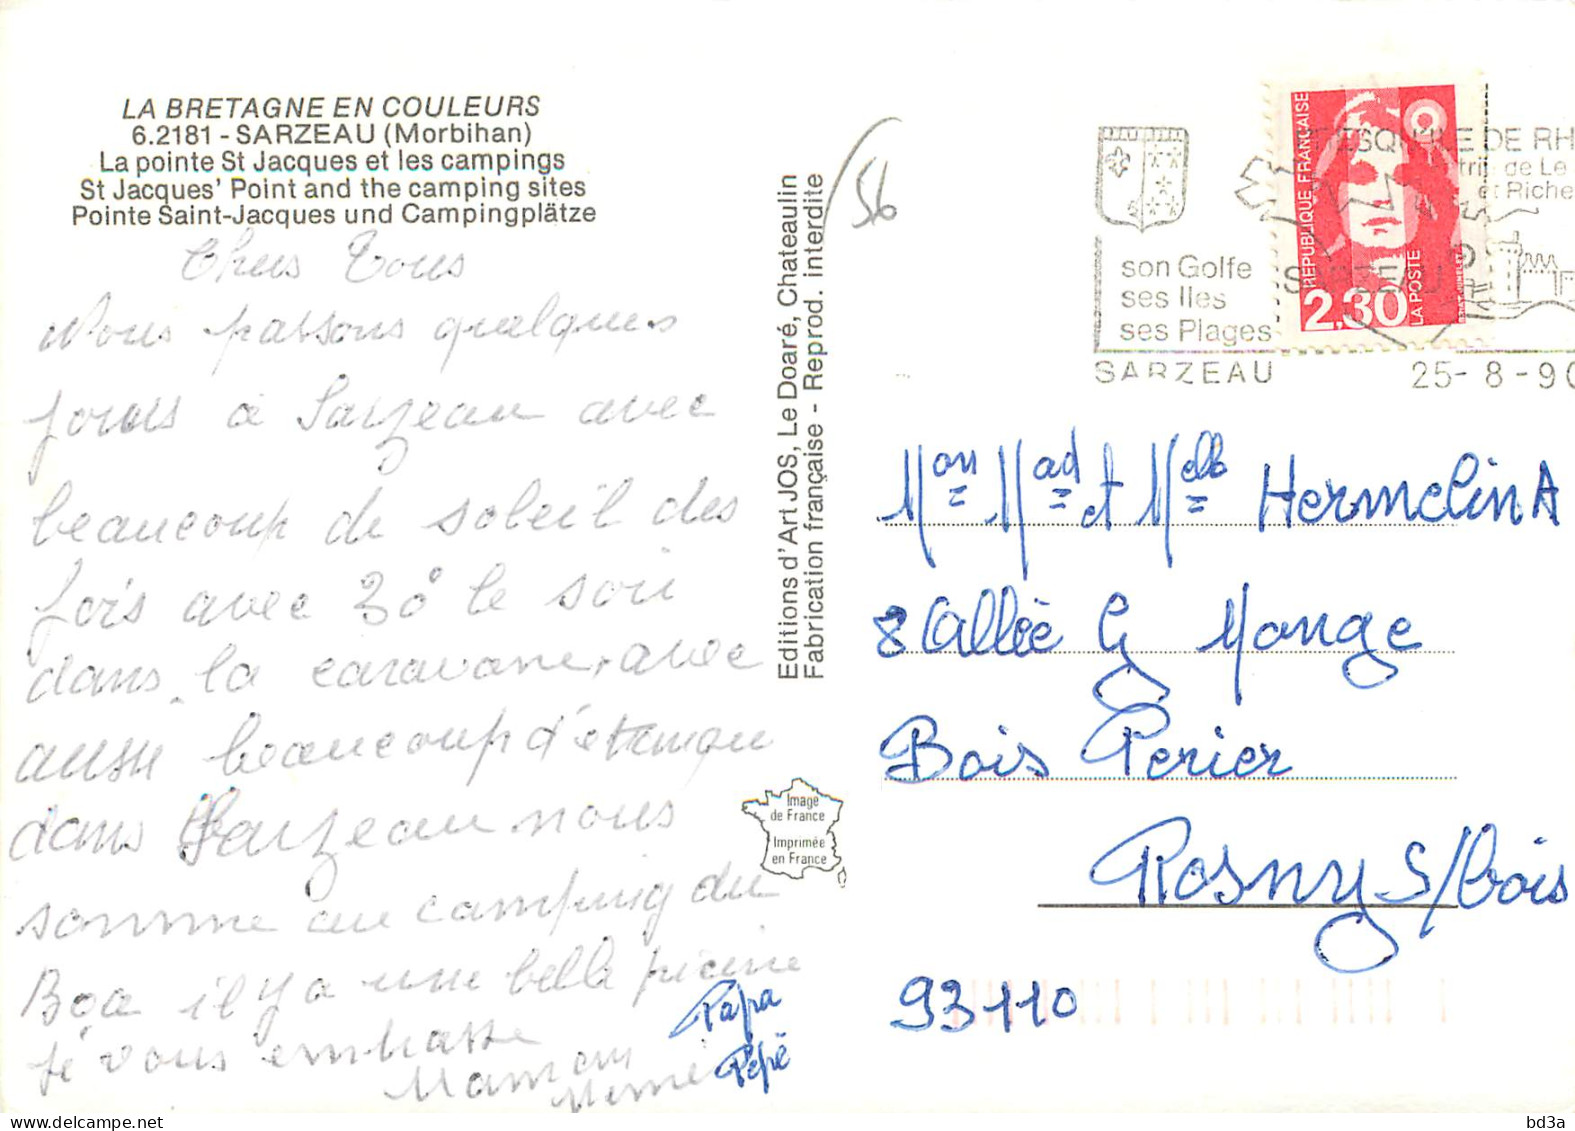 LA BRETAGNE EN COULEURS
6.2181 - SARZEAU (Morbihan)
La pointe St Jacques et les campings
St Jacques' Point and the camping sites
Pointe Saint-Jacques und Campingplätze
Chers Tous
Nous passons quelques
jours à Sarzeau avec
beaucoup de soleil des
fois avec 30° le soir
dans la caravane, avec
aussi beaucoup d'
dans Sarzeau nous
somme au camping du
Boa il y a une belle picine
Je vous embrasse
Maman
Mémé
Papa
Pépé
Editions d'Art JOS, Le Doaré, Chateaulin
Fabrication française - Reprod. interdite
Image
de France
Imprimée
en France
56
son Golfe
ses Iles
ses Plages
SARZEAU
25-8-90
RÉPUBLIQUE FRANÇAISE
2,30
LA POSTE
SARZEAU
Mon Mad et Melle HermelinA
8 Allée G Monge
Bois Perier
Rosny S/bois
93110
delcampe.net
bd3a